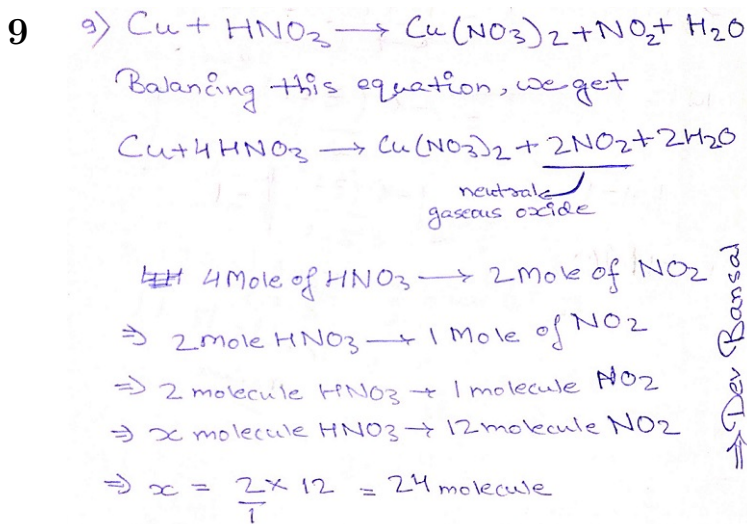 9
9) Cu + HNO3 → Cu(NO3)2 + NO2 + H2O
Balancing this equation, we get
Cu + 4HNO3 → Cu(NO3)2 + 2NO2 + 2H2O
neutral
gaseous oxide
4 Mole of HNO3 → 2 Mole of NO2
⇒ 2 mole HNO3 → 1 Mole of NO2
⇒ 2 molecule HNO3 → 1 molecule NO2
⇒ x molecule HNO3 → 12 molecule NO2
⇒ x = 2/1 × 12 = 24 molecule
⇒ Dev Bansal